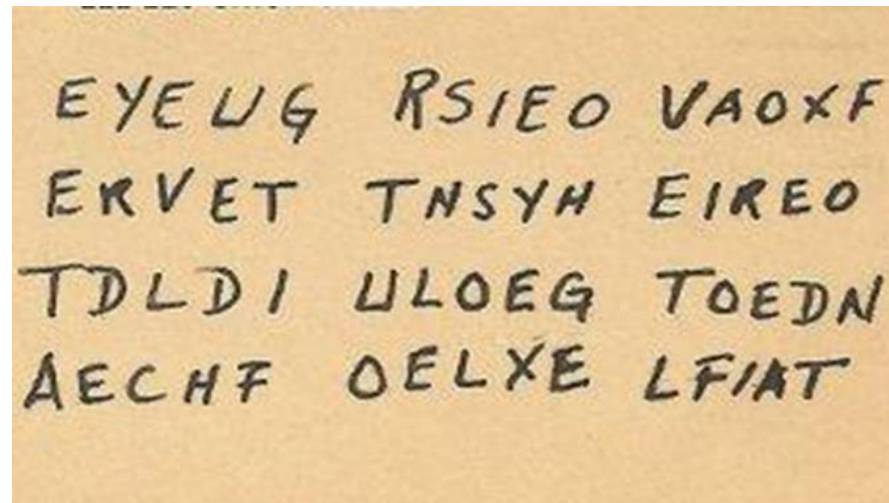 EYEUG RSIEO VAOXF
ERVET TNSYH EIREO
TDLDI ULOEG TOEDN
AECHF OELXE LFIAT